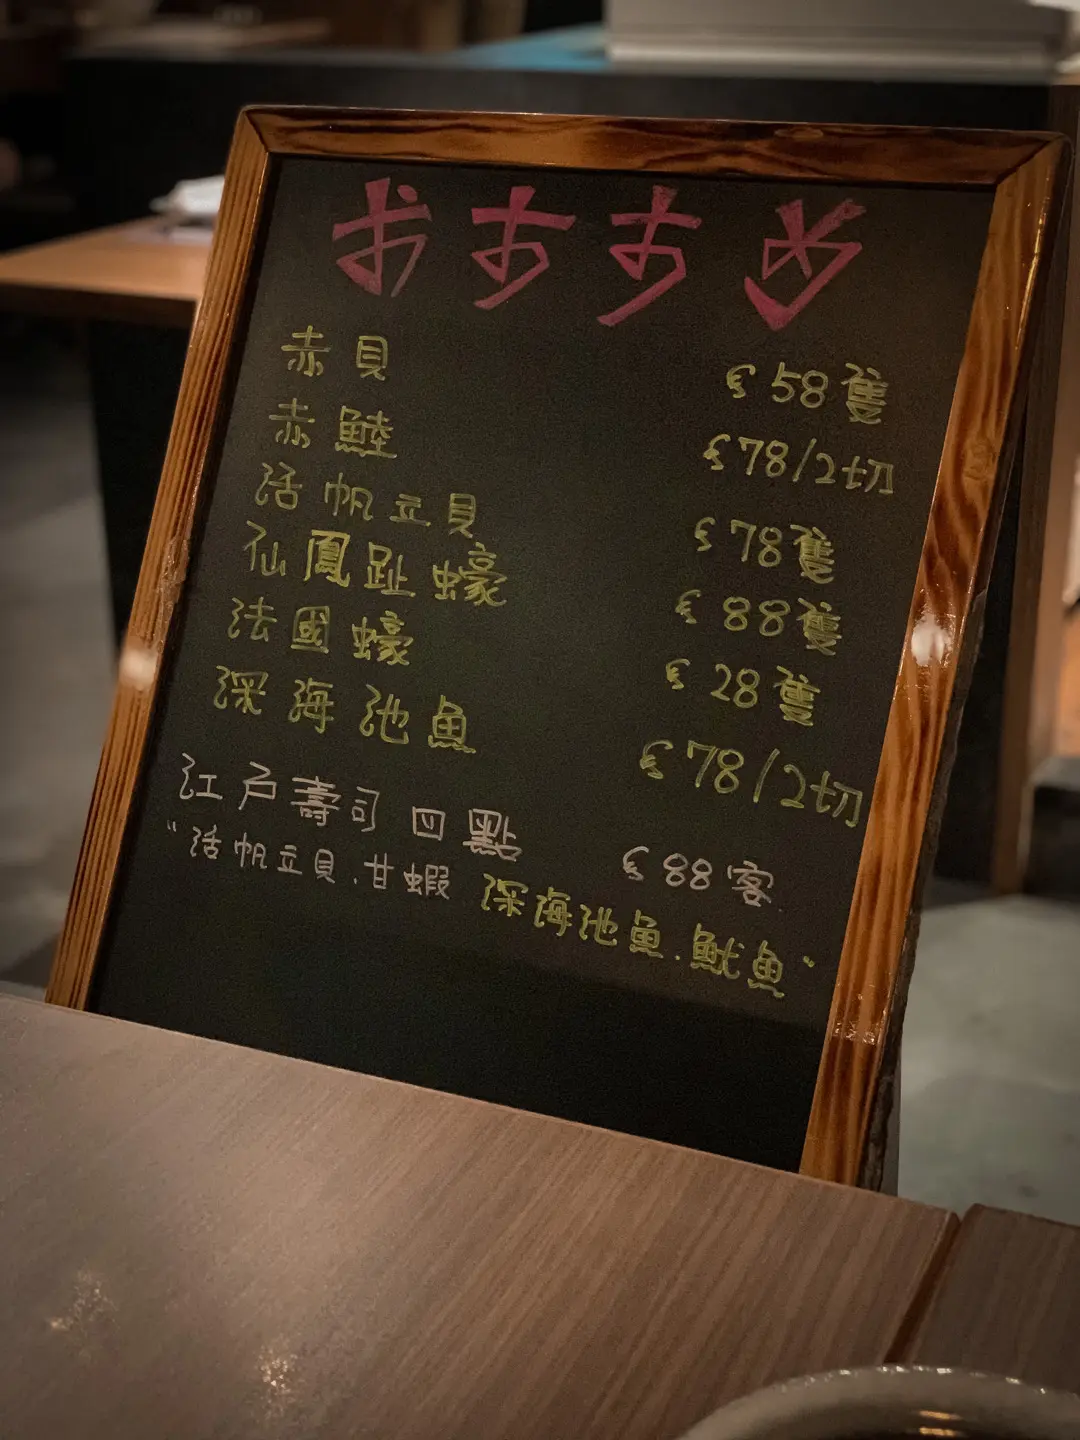 おすすめ
赤貝 $58隻
赤鯥 $78/2切
活帆立貝 $78隻
仙鳳趾蠔 $88隻
法國蠔 $28隻
深海池魚 $78/2切
江戶壽司四點 $88客
"活帆立貝.甘蝦 深海池魚.魷魚"